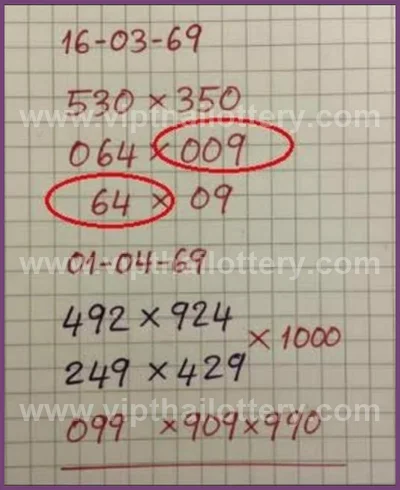 16-03-69
530 × 350
www.vipthailottery.com
064 × 009
64 × 09
www.vipthailottery.com
01-04-69
492 × 924
× 1000
249 × 429
www.vipthailottery.com
099 ×909×990